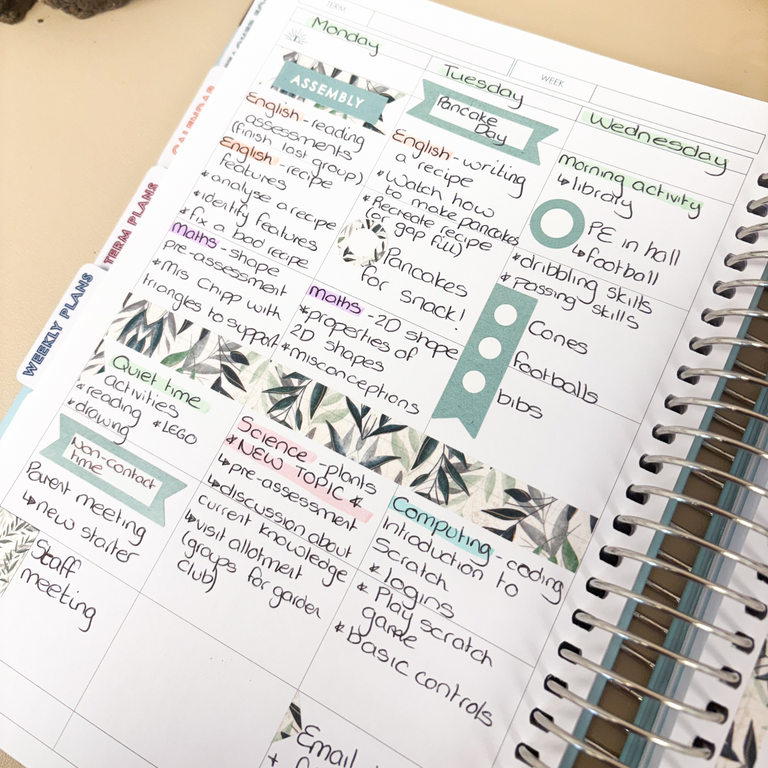 TERM
WEEK
CALENDAR
TERM PLANS
WEEKLY PLANS
Monday
ASSEMBLY
English - reading
assessments
(finish last group)
English - recipe
features
* analyse a recipe
* identify features
* fix a bad recipe
maths - shape
pre-assessment
* Mrs Chipp with
triangles to support
Quiet time
activities
* reading
* drawing * LEGO
Non-contact
time
Parent meeting
↳ new starter
Staff
meeting
Tuesday
Pancake
Day
English - writing
a recipe
* Watch how
to make pancakes
* Recreate recipe
(or gap fill)
Pancakes
for snack!
maths - 2D shape
* properties of
2D shapes
* misconceptions
Science - plants
* NEW TOPIC *
↳ pre-assessment
↳ discussion about
current knowledge
↳ visit allotment
(groups for garden
club)
Email
Wednesday
morning activity
↳ library
PE in hall
↳ football
* dribbling skills
* passing skills
Cones
footballs
bibs
Computing - coding
Introduction to
Scratch
* logins
* Play scratch
game
* basic controls